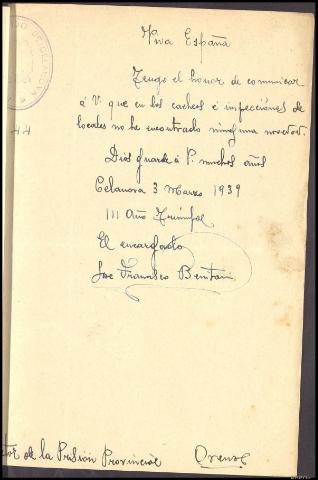 Viva España
Tengo el honor de comunicar
á V. que en los cacheos e inspecciones de
locales no he encontrado ninguna novedad.
Dios guarde á V. muchos años
Celanova 3 Marzo 1939
III Año Triunfal
El encargado
José Francisco
44
de la Prisión Provincial Orense